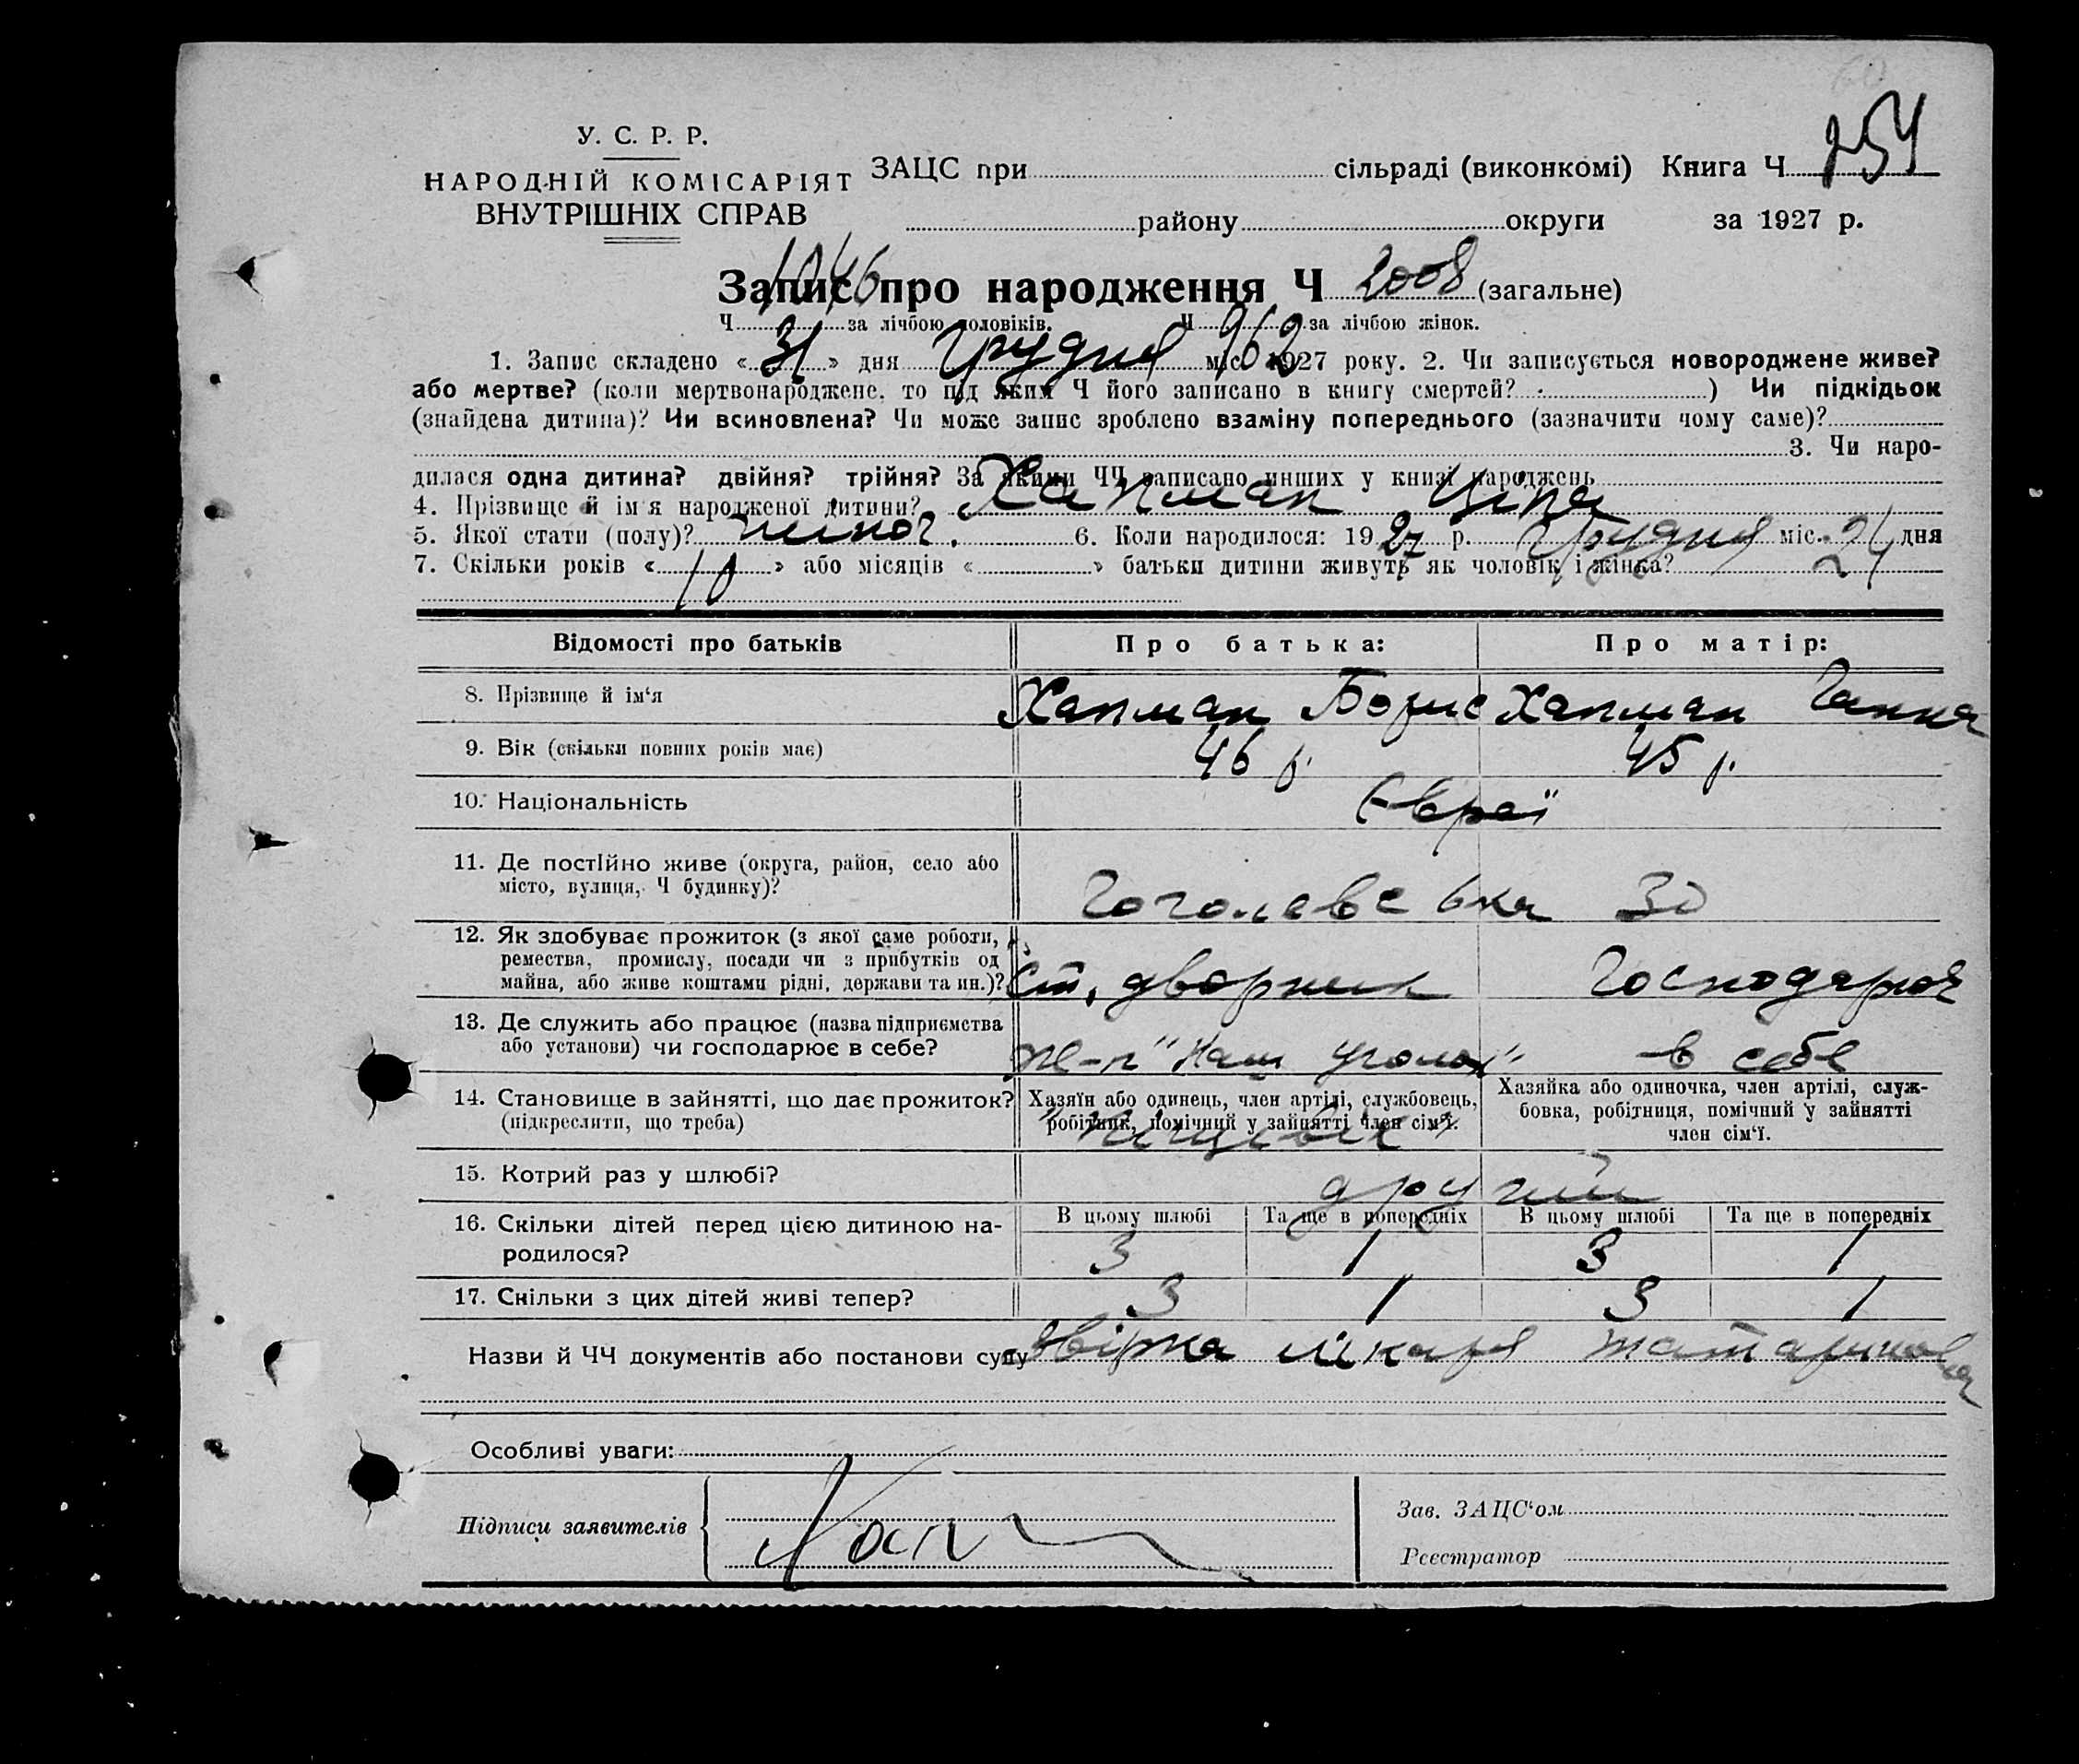 254
У. С. Р. Р.
НАРОДНІЙ КОМІСАРІЯТ
ВНУТРІШНІХ СПРАВ
ЗАЦС при сільраді (виконкомі) Книга Ч
району округи за 1927 р.
1046
Запис про народження Ч 2008 (загальне)
Ч за лічбою чоловіків. Ч 962 за лічбою жінок.
1. Запис складено « 31 » дня Грудня міс. 1927 року. 2. Чи записується новороджене живе?
або мертве? (коли мертвонароджене, то під яким Ч його записано в книгу смертей? ) Чи підкідьок
(знайдена дитина)? Чи всиновлена? Чи може запис зроблено взаміну попереднього (зазначити чому саме)?
3. Чи наро-
дилася одна дитина? двійня? трійня? За якими ЧЧ записано инших у книзі народжень
4. Прізвище й ім'я народженої дитини? Хапман Ципа
5. Якої стати (полу)? жіноч. 6. Коли народилося: 1927 р. Грудня міс. 24 дня
7. Скільки років « 10 » або місяців « » батьки дитини живуть як чоловік і жінка?
Відомості про батьків Про батька: Про матір:
8. Прізвище й ім'я Хапман Борис Хапман Ганна
9. Вік (скільки повних років має) 46 р. 45 р.
10. Національність Євреї
11. Де постійно живе (округа, район, село або
місто, вулиця, Ч будинку)?
Гоголевська 30
12. Як здобуває прожиток (з якої саме роботи,
ремества, промислу, посади чи з прибутків од
майна, або живе коштами рідні, держави та ин.)?
Ст. дворник Господарює
13. Де служить або працює (назва підприємства
або установи) чи господарює в себе?
"Наш уголок" в себе
14. Становище в зайнятті, що дає прожиток?
(підкреслити, що треба)
Хазяїн або одинець, член артілі, службовець,
робітник, помічний у зайнятті член сім'ї.
Хазяйка або одиночка, член артілі, служ-
бовка, робітниця, помічний у зайнятті
член сім'ї.
15. Котрий раз у шлюбі? другий
16. Скільки дітей перед цією дитиною на-
родилося?
В цьому шлюбі Та ще в попередніх В цьому шлюбі Та ще в попередніх
3 1 3 1
17. Скільки з цих дітей живі тепер? 3 1 3 1
Назви й ЧЧ документів або постанови суду звірка лікаря
Особливі уваги:
Підписи заявителів
Зав. ЗАЦС'ом
Реєстратор